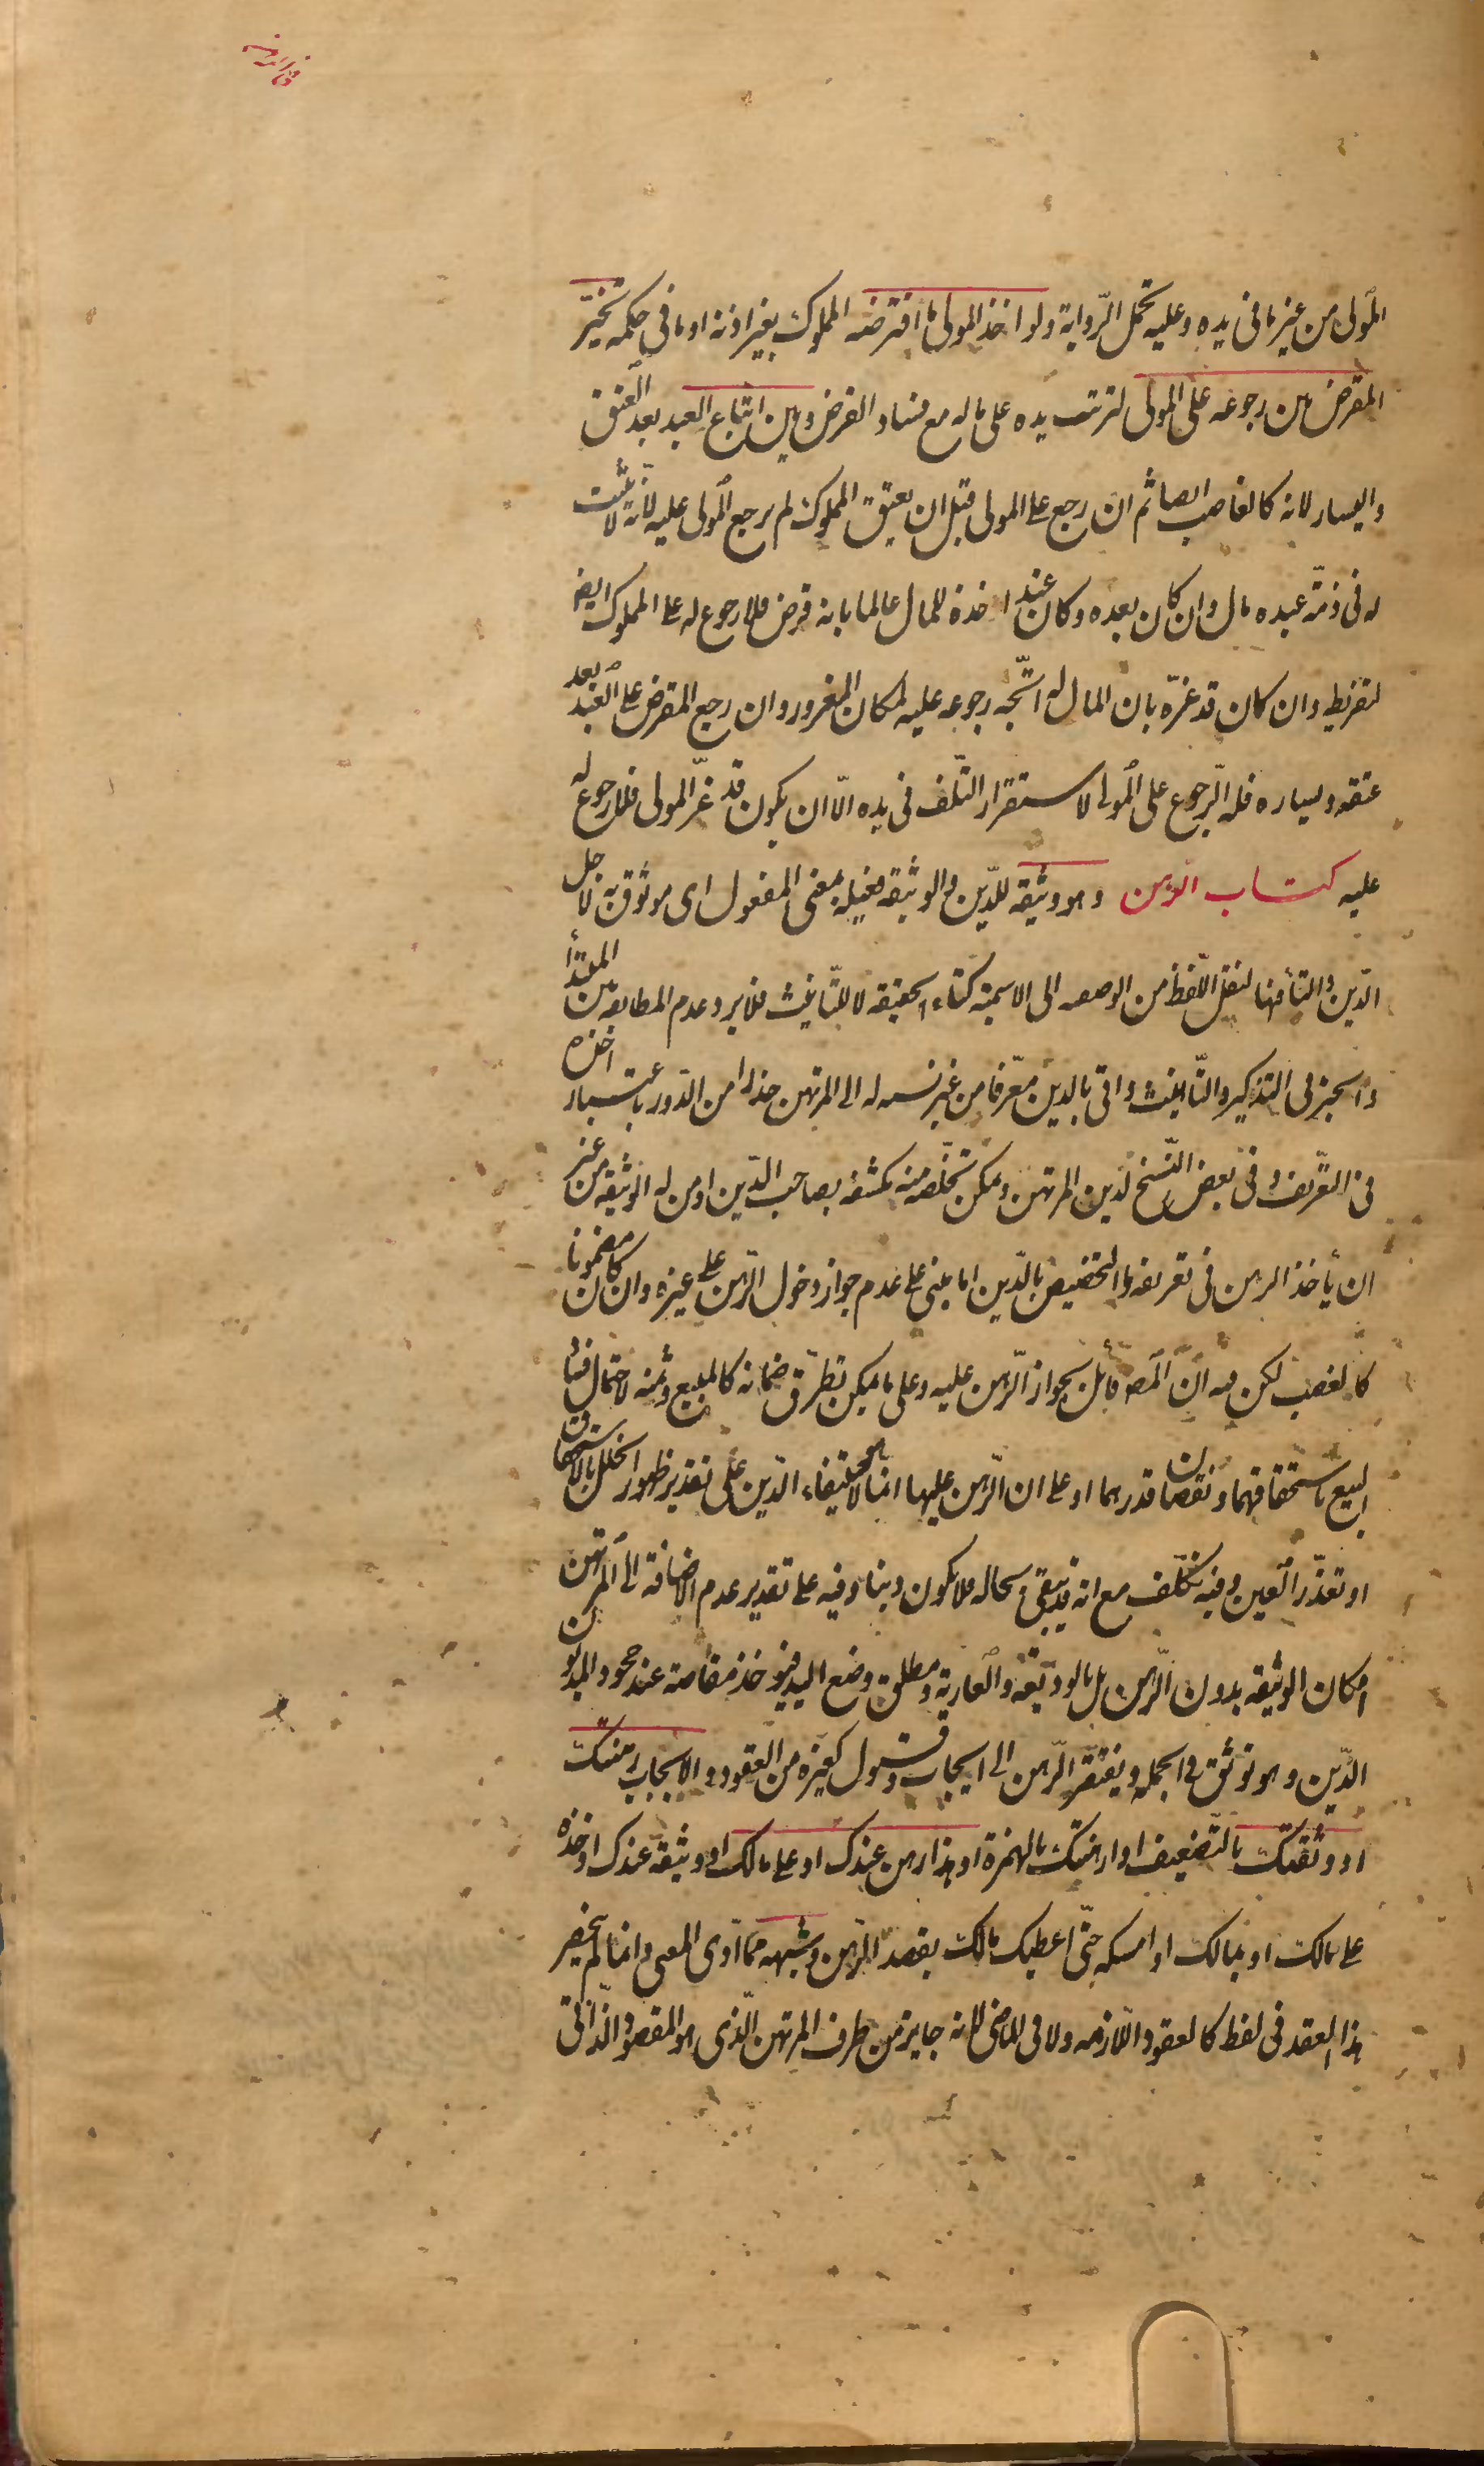 المولى من غير ما في يده وعليه تحمل الرّواية ولو اخذ المولى ما اقترضه المملوك بغير اذنه او ما في حكمه تخيّر
المقرض بين رجوعه على المولى لترتب يده على ماله مع فساد القرض وبين اتباع العبد بعد العتق
واليسار لانه كالغاصب ايضا ثم ان رجع على المولى قبل ان يعتق المملوك لم يرجع المولى عليه لانّه لا يثبت
له في ذمّة عبده مال وان كان بعده وكان عند اخذه للمال عالما بانه قرض فلا رجوع له على المملوك ايض
لتفريط وان كان قد غرّه بان المال له اتّجه رجوعه عليه لمكان المغرور وان رجع المقرض على العبد بعد
عتقه ويساره فله الرّجوع على المولى لاستقرار التّلف في يده الّا ان يكون قد غرّ المولى فلا رجوع له
عليه كتاب الرّهن وهو وثيقة للدّين والوثيقة فعيلة بمعنى المفعول اى موثوق به لاجل
الدّين والتاء فيها لنقل اللّفظ من الوصفيه الى الاسمية كتاء الحقيقة لا للتّانيث فلا يرد عدم المطابقة بين المبتدأ
والخبر في التذكير والتّانيث واتى بالدين معّرفا من غير نسبه له الى المرتهن حذرا من الدّور باعتبار اخذه
في التعّريف وفى بعض النّسخ لدين المرتهن ويمكن تخلّصه منه بكشفه بصاحب الدّين او من له الوثيقه من غير
ان يأخذ الرهن في تعريفه والتخصيص بالدّين اما مبنى على عدم جواز دخول الرّهن على غيره وان كان مضمونا
كالغصب لكن فيه انّ المصّ قائل بجواز الرّهن عليه وعلى ما يمكن تطرّق ضمانه كالمبيع وثمنه لاحتمال فساد
البيع باستحقاقهما ونقصان قدرهما او على ان الرّهن عليها انما هو لاستيفاء الدّين على تقدير ظهور الخلل بالاستحقاق
او تعذّر العين وفيه تكلّف مع انه قد يبقى بحاله فلا يكون دينا وفيه على تقدير عدم الاضافة الى المرتهن
امكان الوثيقه بدون الرّهن بل بالوديعة والعارية ومطلق وضع اليد فيؤخذ مقاصة عند جحود المديون
الدّين وهو توثّق في الجملة ويفتقر الرّهن الى ايجاب وقبول كغيره من العقود والايجاب رهنتك
او وثّقتك بالتّضعيف او ارهنتك بالهمزة او هذا رهن عندك او على مالك او وثيقة عندك او خذه
على مالك او بمالك او امسكه حتّى اعطيك مالك بقصد الرّهن وشبهه ممّا ادّى المعنى وانما لم ينحصر
هذا العقد في لفظ كالعقود اللّازمه ولا في الماضى لانه جايز من طرف المرتهن الّذى هو المقصود الذاتى